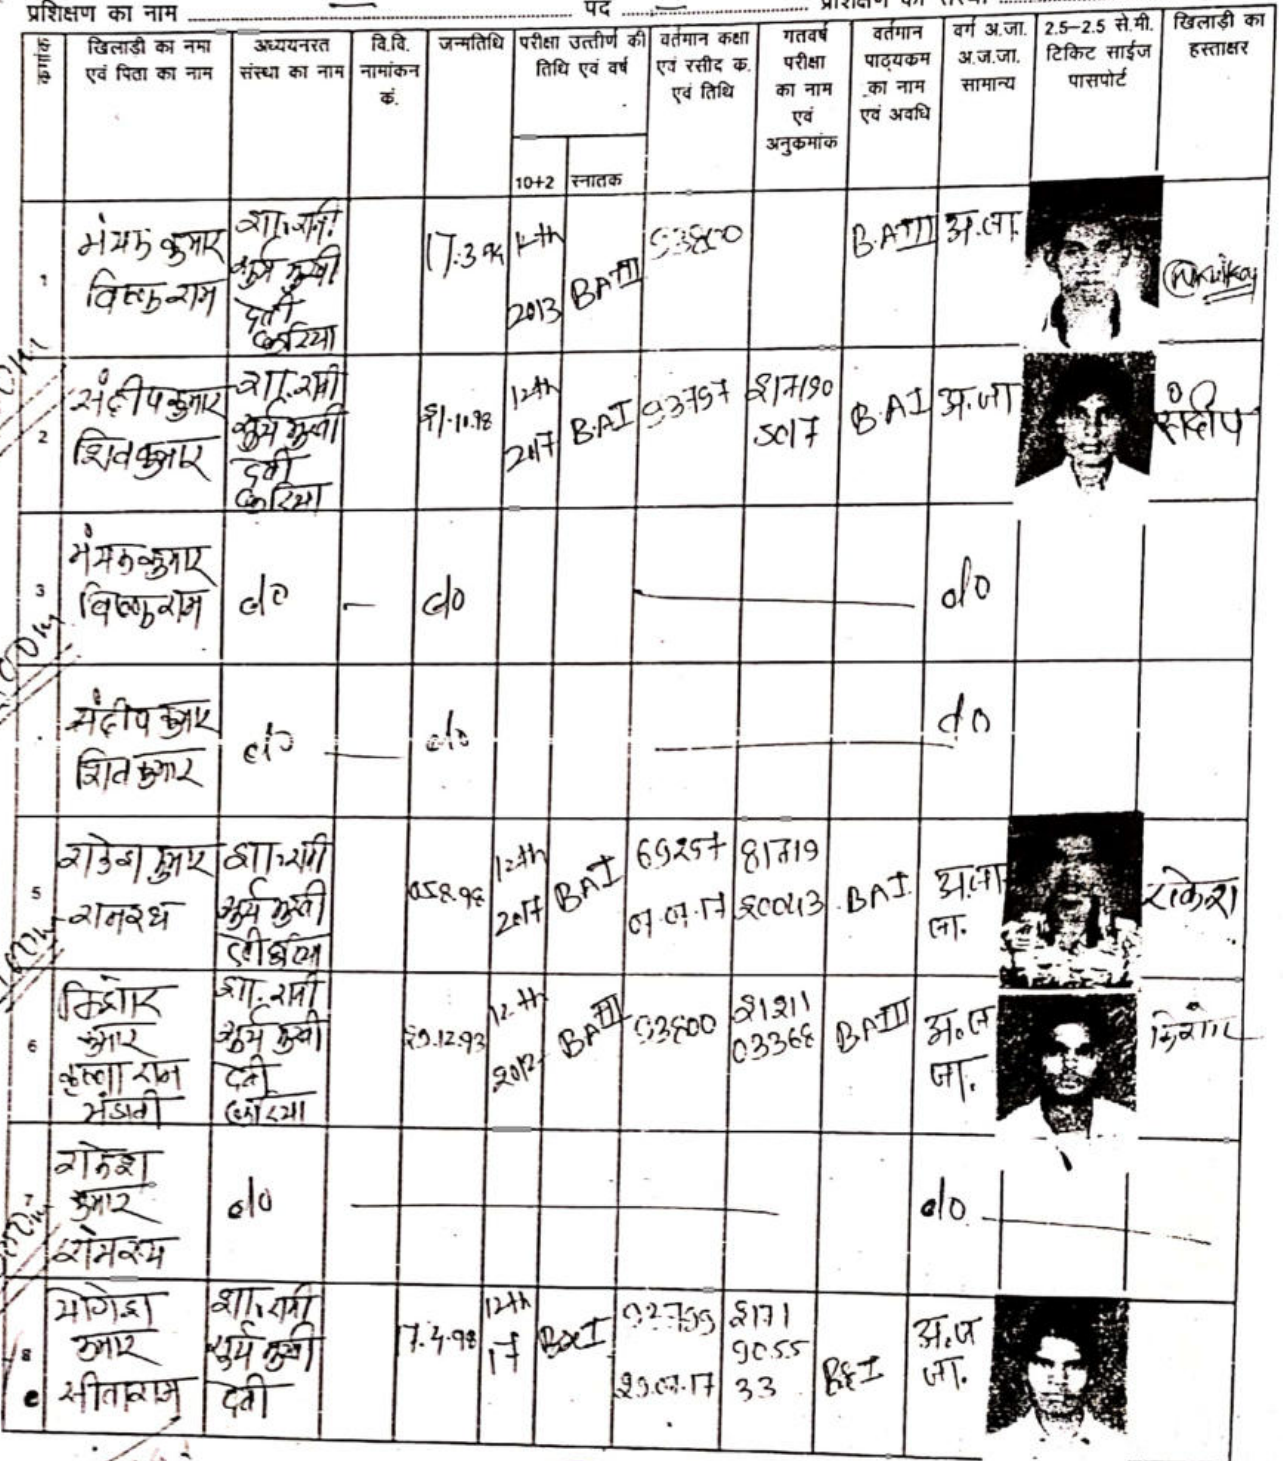 प्रशिक्षण का नाम .......... पद .......... प्रशिक्षण
क्रमांक
खिलाड़ी का नमा
एवं पिता का नाम
अध्ययनरत
संस्था का नाम
वि.वि.
नामांकन
कं.
जन्मतिथि
परीक्षा उत्तीर्ण की
तिथि एवं वर्ष
10+2
स्नातक
वर्तमान कक्षा
एवं रसीद क.
एवं तिथि
गतवर्ष
परीक्षा
का नाम
एवं
अनुकमांक
वर्तमान
पाठ्यकम
का नाम
एवं अवधि
वर्ग अ.जा.
अ.ज.जा.
सामान्य
2.5-2.5 से.मी.
टिकिट साईज
पासपोर्ट
खिलाड़ी का
हस्ताक्षर
1
कुमार
शा. रानी
सूर्य मुखी
देवी
छुरिया
12th
2013
BA III
93800
B.A III
अ.जा.
2
संदीप कुमार
शिव कुमार
शा. रानी
सूर्य मुखी
देवी
छुरिया
12th
2017
B.A I
93797
217190
5017
B.A I
अ.जा
संदीप
3
कुमार
do
do
do
4
संदीप कुमार
शिव कुमार
do
do
do
5
राकेश कुमार
शा. रानी
सूर्य मुखी
12th
2017
BA I
69257
07.07.17
81719
20043
BA I.
राकेश
6
किशोर
कुमार
कृष्णा राम
मंडावी
शा. रानी
सूर्य मुखी
देवी
छुरिया
29.12.93
12th
2012
BA III
93800
21211
03368
BA III
अ.ज
जा.
किशोर
7
राकेश
कुमार
do
do
8
योगेश
कुमार
सीताराम
शा. रानी
सूर्य मुखी
देवी
17.4.98
12th
17
92799
29.07.17
2171
9055
33
अ.ज
जा.